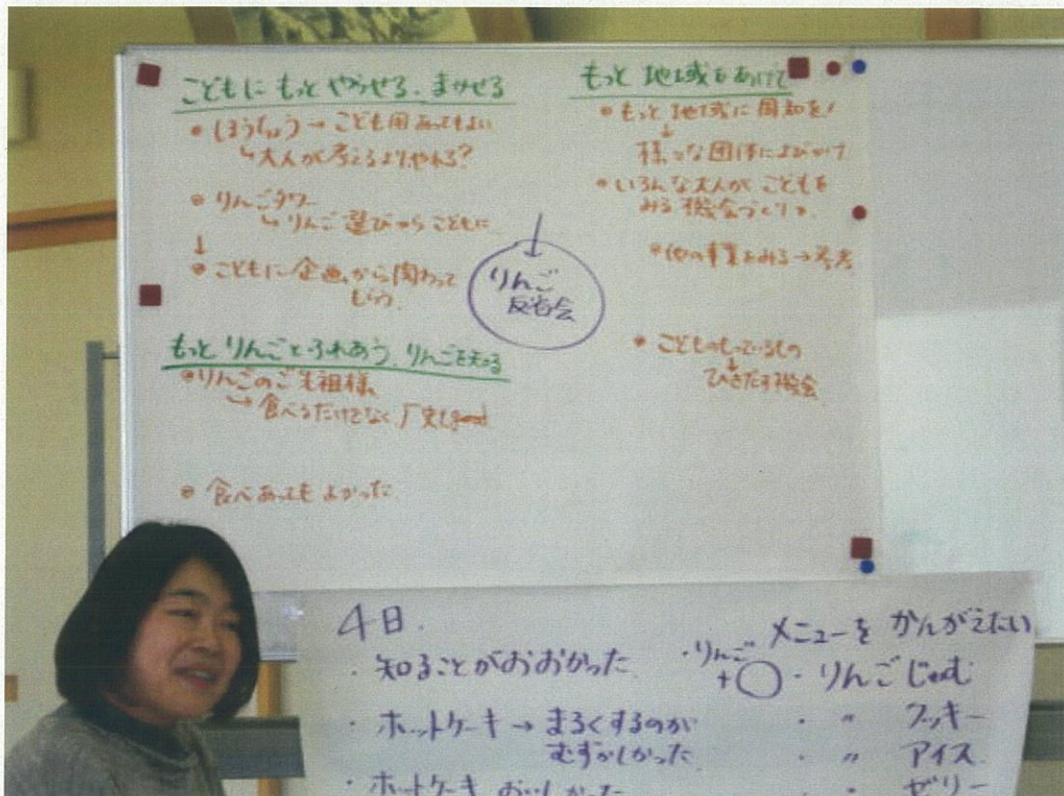 こどもに もっと やらせる、まかせる
• ほうちょう → こども用あってもよい
↳ 大人が考えるよりやれる?
• りんごタワー
↳ りんご選びからこどもに
↓
• こどもに企画から関わって
もらう。
もっと りんごとふれあう、りんごを知る
• りんごのご先祖様
↳ 食べるだけでなく、歴史もgood
• 食べあってもよかった
りんご
反省会
もっと 地域をあげて
• もっと 地域に周知を!
↓
様々な団体によびかけ
• いろんな大人が こどもを
みる機会づくり
• 他の事業をみる → 参考
• こどものもっているもの
↓
ひきだす機会
4日.
・知ることがおおかった
・ホットケーキ → まるくするのが
むずかしかった
・ホットケーキ おいしかった
メニューを かんがえたい
・りんご
+○
・りんごじゃむ
・ 〃 クッキー
・ 〃 アイス
・ 〃 ゼリー